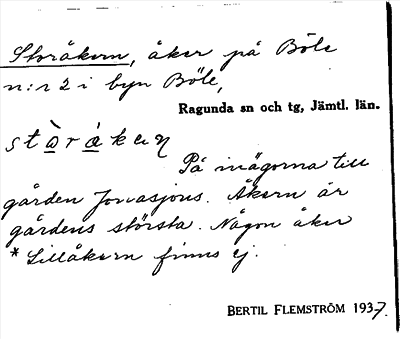 Storåkern, åker på Böle
n:r 2 i byn Böle,
Ragunda sn och tg, Jämtl. län.
På inägorna till
gården Jon-asjons. Åkern är
gårdens största. Någon åker
* Lillåkern finns ej.
BERTIL FLEMSTRÖM 1937.